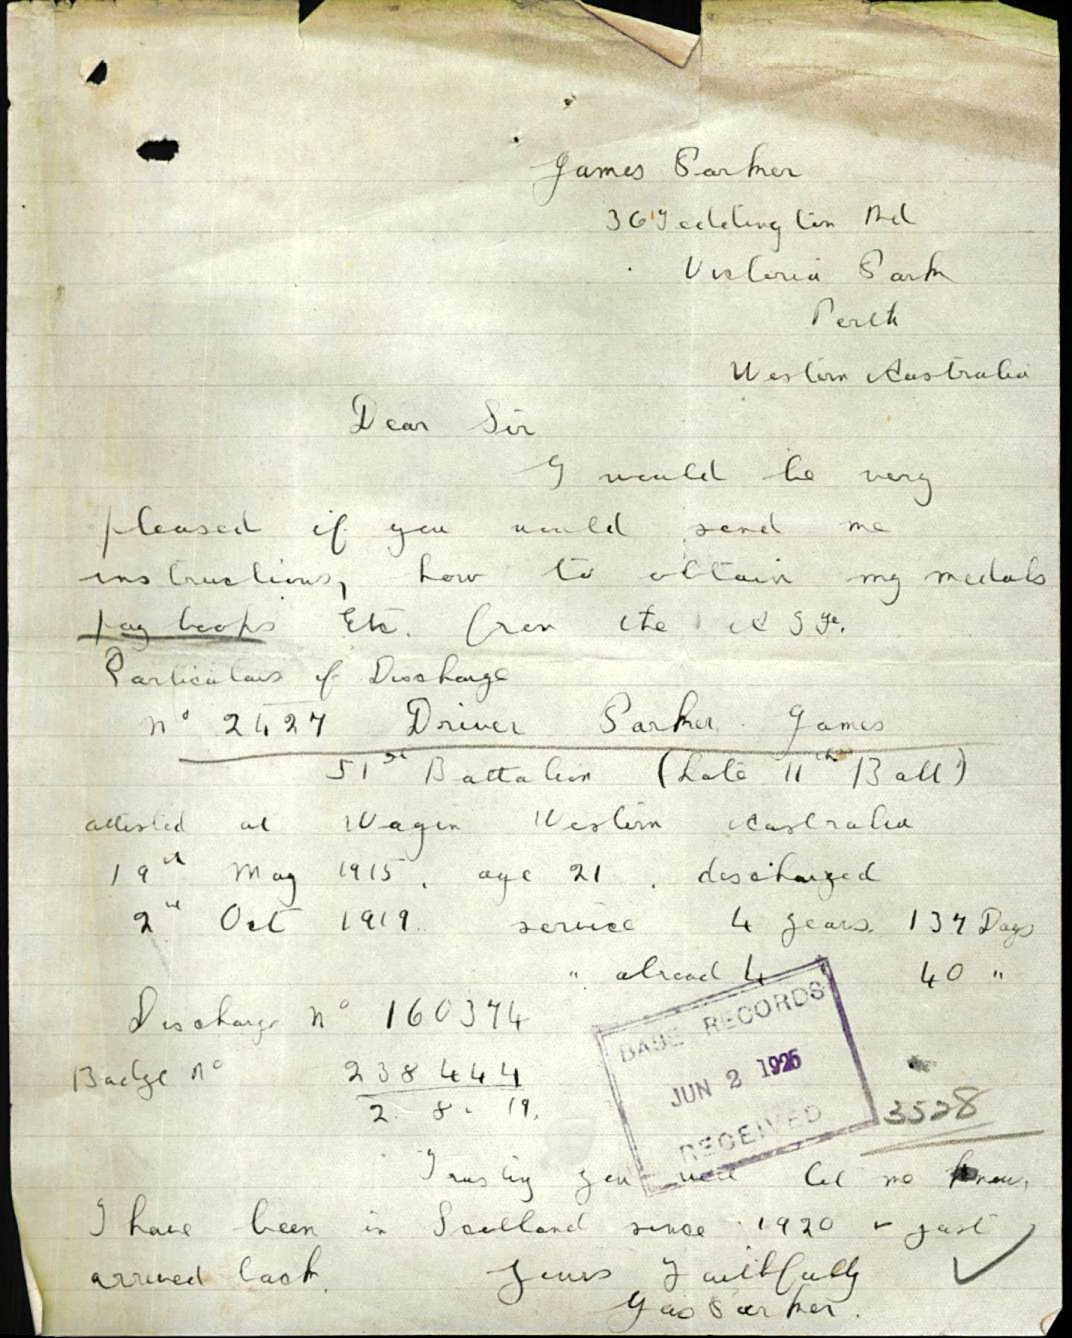 James Parker
36 Teddington Rd
Victoria Park
Perth
Western Australia
Dear Sir
I would be very
pleased if you would send me
instructions, how to obtain my medals
pay books Etc. from the
Particulars of Discharge
No 2427 Driver Parker James
51st Battalion (Late 11th Batt)
attested at Wagin Western Australia
19th May 1915, age 21, discharged
2nd Oct 1919. service 4 years. 137 Days
" abroad 4 40 "
Discharge No 160374
Badge No 238444
2. 8. 19.
BASE RECORDS
JUN 2 1926
RECEIVED
3528
Trusting you will let me know,
I have been in Scotland since 1920 & just
arrived back. Yours Faithfully
Jas Parker.